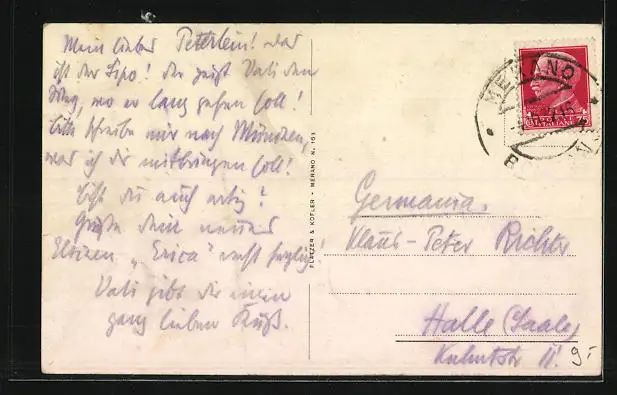 Mein lieber Peterlein! Das
ist der Sipo! Der zeigt Vati den
Weg, wo er lang gehen soll!
Bitte schreibe mir nach München,
was ich dir mitbringen soll!
Bist du auch artig?
Grüße dein neues
"Erica" recht
Vati gibt dir einen
ganz lieben Kuß.
PLAETZER & KOFLER - MERANO N. 151
MERANO
75
Germania.
Klaus-Peter Richter
Halle (Saale)
II!
9.-